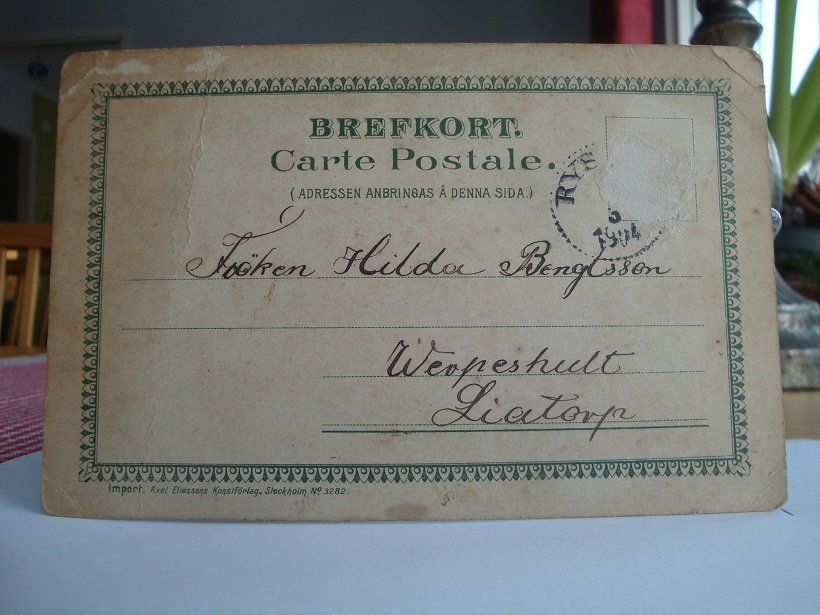 BREFKORT.
Carte Postale.
(ADRESSEN ANBRINGAS Å DENNA SIDA.)
RYS
6
1904
Fröken Hilda Bengtsson
Werpeshult
Liatorp
Import. Axel Eliassons Konstförlag, Stockholm Nº 3282.